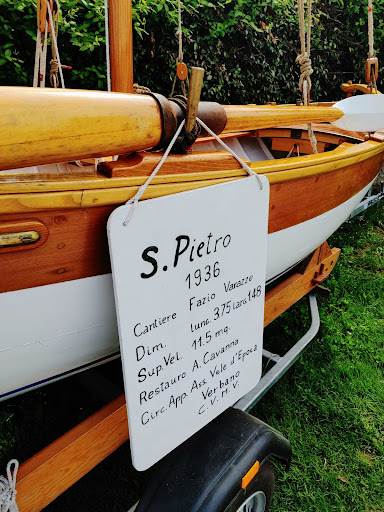 S. Pietro
1936
Cantiere Fazio Varazze
Dim. lung. 3.75 larg. 1.48
Sup. Vel. 11.5 mq.
Restauro A. Cavanna
Circ. App. Ass. Vele d'Epoca
Verbano
C.V.M.V.